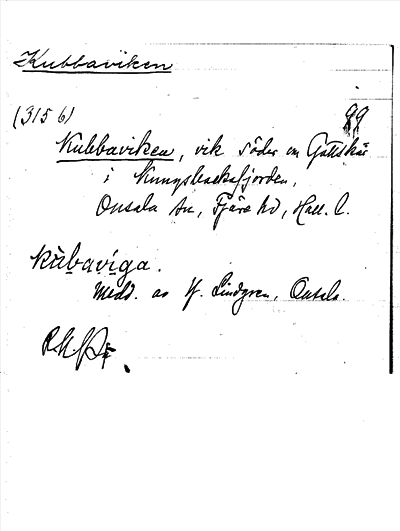 Kubbaviken
(315 6) 89
Kubbaviken, vik söder om Gottskär
i Kungsbackafjorden,
Onsala sn, Fjäre hd, Hall. l.
kùbavíga.
Medd. av H. Lindgren, Onsala.